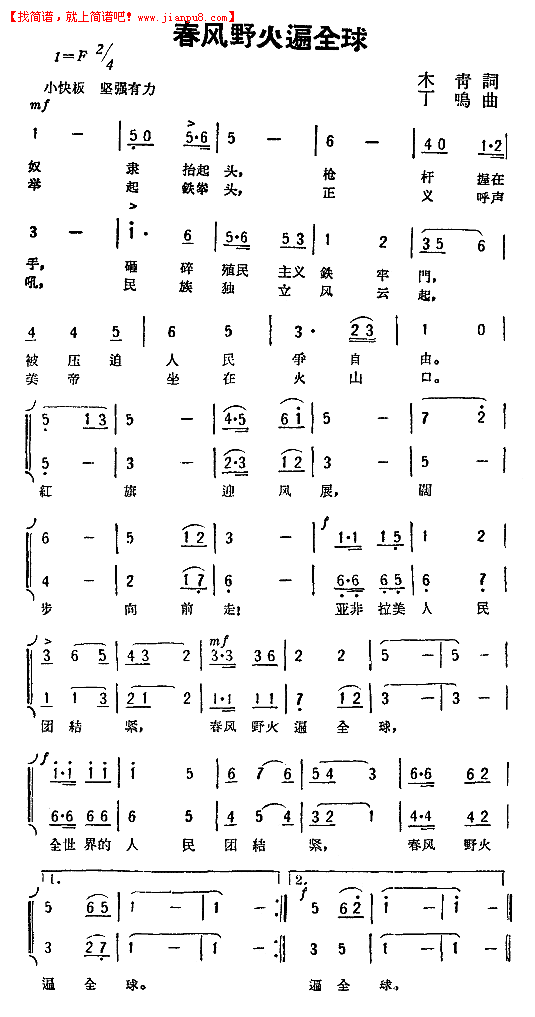 【找简谱，就上简谱吧！www.jianpu8.com】
春风野火遍全球
1=F 2/4
小快板 坚强有力
木青詞
丁鳴曲
mf
1 - | 5 0 5·6 | 5 - | 6 - | 4 0 1·2 |
奴 隶 抬起 头， 枪 杆 握在
举 起 鉄拳 头， 正 义 呼声
3 - | i· 6 | 5·6 5 3 | 1 2 | 3 5 6 |
手， 砸 碎 殖民 主义 鉄 牢 門，
吼， 民 族 独 立 风 云 起，
4 4 5 | 6 5 | 3· 2 3 | 1 0 |
被 压 迫 人 民 爭 自 由。
美 帝 坐 在 火 山 口。
5 1 3 | 5 - | 4·5 6 i | 5 - | 7 2 |
5 - | 3 - | 2·3 1 2 | 3 - | 5 - |
紅 旗 迎 风 展， 闊
f
6 - | 5 1 2 | 3 - | 1·1 1 5 | 1 2 |
4 - | 2 1 7 | 6 - | 6·6 6 5 | 6 7 |
步 向 前 走； 亚非 拉美 人 民
mf
3 6 5 | 4 3 2 | 3·3 3 6 | 2 2 | 5 - | 5 - |
1 1 3 | 2 1 2 | 1·1 1 1 | 7 1 2 | 3 - | 3 - |
团 結 紧， 春风 野火 遍 全 球，
f
i·i i i | i 5 | 6 7 6 | 5 4 3 | 6·6 6 2 |
6·6 6 6 | 6 5 | 4 5 4 | 3 2 1 | 4·4 4 2 |
全世 界的 人 民 团 結 紧， 春风 野火
1. 2.
f
5 6 5 | 1 - | 1 - :| 5 6 2 | i - | i - ||
3 2 7 | 1 - | 1 - :| 3 5 | 1 - | 1 - ||
遍 全 球。 遍 全 球。